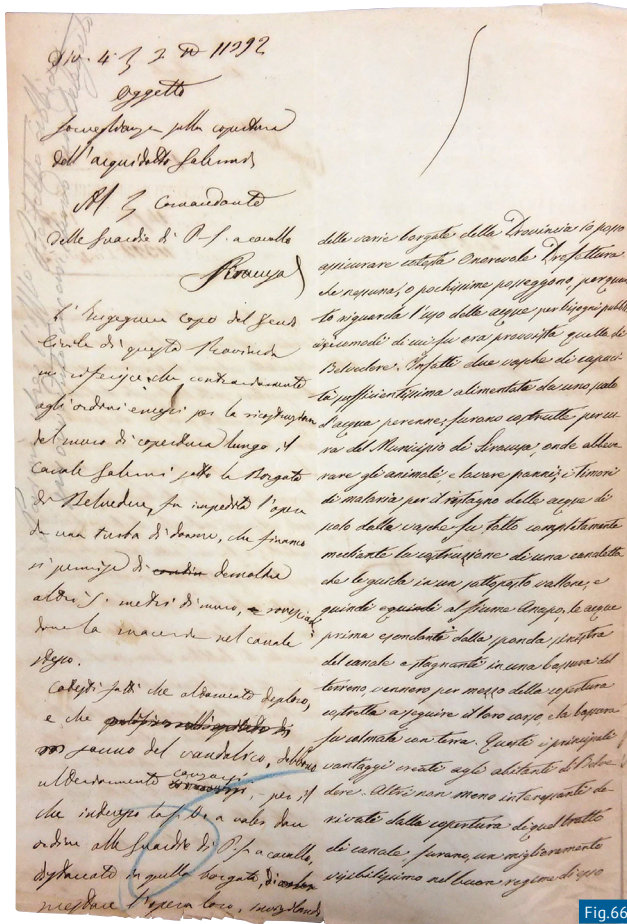 Div. 4. 3 2. N 11292
Oggetto
Sorveglianza sulla copertura
dell'acquidotto Galermi
Al Comandante
delle Guardie di P. S. a cavallo
Siracusa
L'Ingegnere Capo del Genio
Civile di questa Provincia
mi riferisce che contrariamente
agli ordini emessi per la ricostruzione
del muro di copertura lungo il
Canale Galermi sotto la Borgata
di Belvedere, fu impedita l'opera
da una turba di donne, che finanche
si permise di demolire
altri 5. metri di muro, rovescian
done la macerie nel canale
stesso.
Cotesti fatti che altamente deploro,
e che
sanno del vandalico, debbono
per il
che interesso la S. V. a voler dare
ordine alle Guardie di P. S. a cavallo,
distaccate in quella borgata, di
prestare l'opera loro,
delle varie borgate della Provincia io posso
assicurare cotesta Onorevole Prefettura
che nessuna, o pochissime posseggono, per quan
to riguarda l'uso delle acque per bisogni pubbli
ci, i comodi di cui fu ora provvista quella di
Belvedere. Infatti due vasche di capaci
tà sufficientissima alimentate da uno zampillo
d'acqua perenne, furono costrutte, per cu
ra del Municipio di Siracusa, onde abbeve
rare gli animali, e lavare panni; i timori
di malaria per il ristagno delle acque di
scolo dalle vasche fu tolto completamente
mediante la costruzione di una canaletta
che le guida in un sottoposto vallone, e
quindi al fiume Anapo, le acque
prima esondanti dalla sponda sinistra
del canale e stagnanti in una bassura del
terreno, vennero per mezzo della copertura
costrette a seguire il loro corso, e la bassura
fu colmata con terra. Questi i principali
vantaggi creati agli abitanti di Belve
dere. Altri non meno interessanti de
rivati dalla copertura di quel tratto
di canale, furono, un miglioramento
visibilissimo nel buon regime di esso
Fig.66